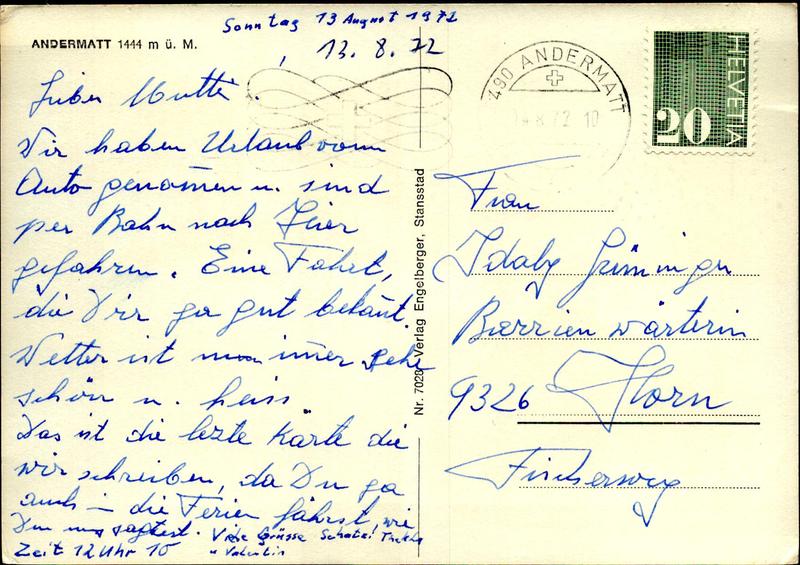 Sonntag 13 August 1972
ANDERMATT 1444 m ü. M.
13. 8. 72
Lieber Mutti.
Wir haben Urlaub vom
Auto genommen u. sind
per Bahn nach Hier
gefahren. Eine Fahrt,
die Dir ja gut bekant.
Wetter ist immer sehr
schön u. heiss
Das ist die lezte Karte die
wir schreiben, da Du ja
auch in die Ferien fährst, wie
Du uns sagtest. Viele Grüsse
u Valentin
Zeit 12 Uhr 10
Nr. 7028 Verlag Engelberger, Stansstad
490 ANDERMATT
8.72 10
HELVETIA
20
Frau
Idaly Grüninger
Barrierenwärterin
9326 Horn
Fischerweg